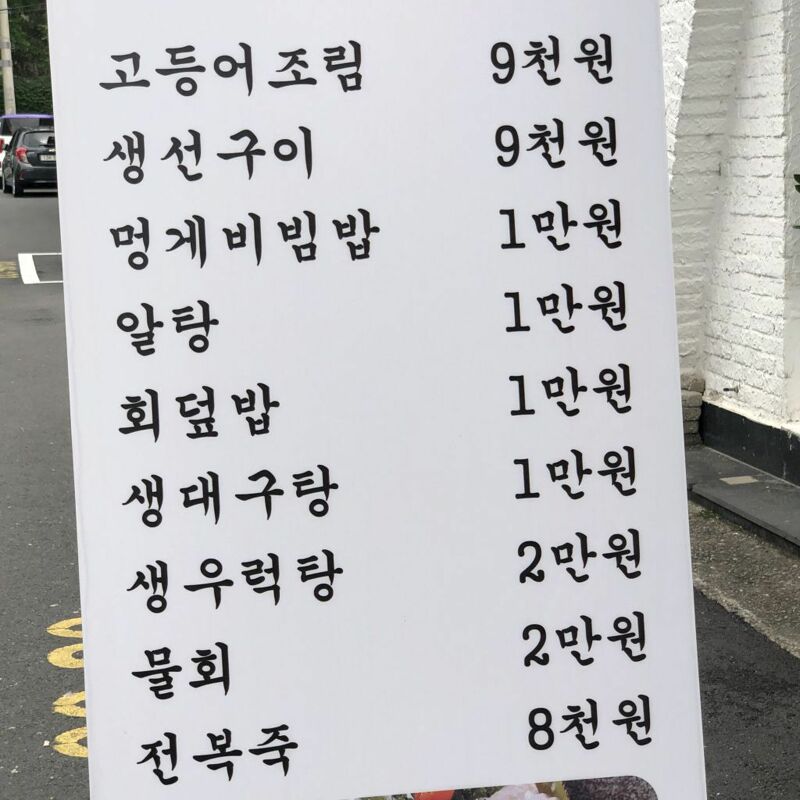 고등어조림 9천원
생선구이 9천원
멍게비빔밥 1만원
알탕 1만원
회덮밥 1만원
생대구탕 1만원
생우럭탕 2만원
물회 2만원
전복죽 8천원